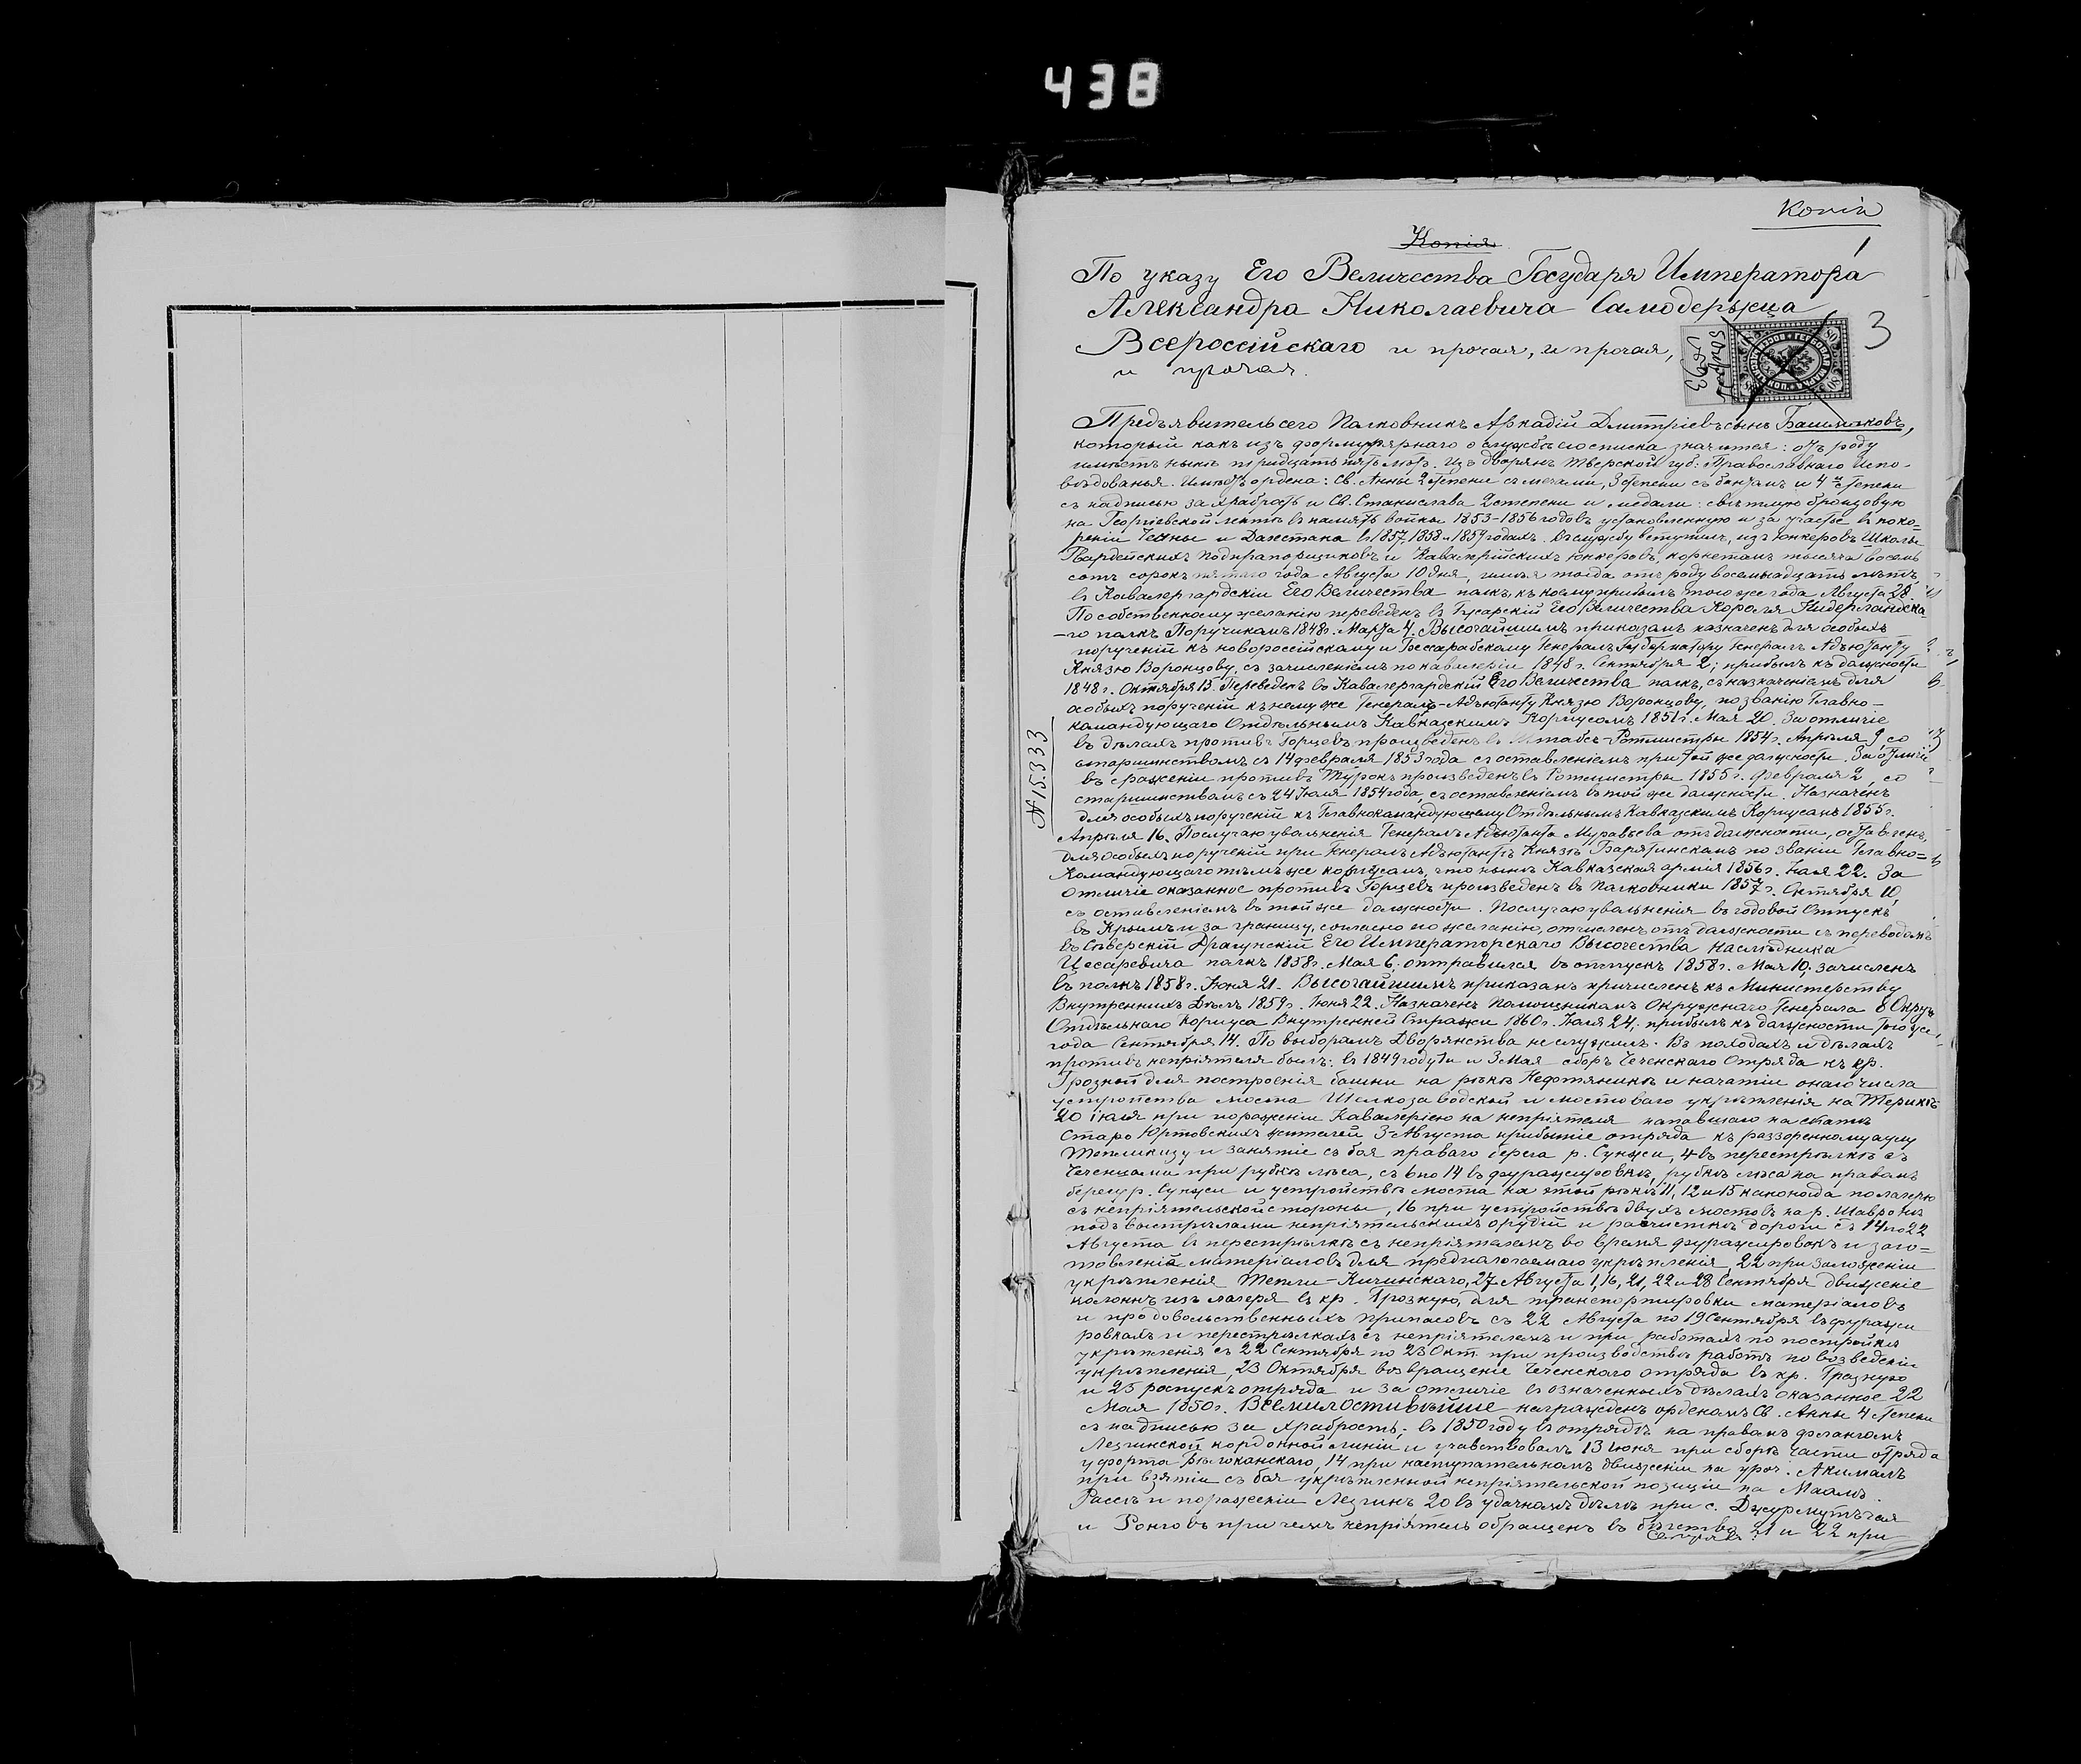 438
Копія
Копія
1
По указу Его Величества Государя Императора
Александра Николаевича Самодержца
Всероссійскаго и прочая, и прочая,
и прочая.
3
№ 15.333
Предъявитель сего Полковникъ Аркадій Дмитріевъ сынъ Башмаковъ,
который какъ изъ формулярнаго о службѣ его списка значится: отъ роду
имѣетъ нынѣ тридцать пять лѣтъ. Изъ дворянъ Тверской губ: Православнаго Испо-
вѣдованья. Имѣетъ ордена: Св. Анны 2 степени съ мечами, 3 степени съ бантомъ и 4й степени
съ надписью за храбрость и Св. Станислава 2 степени и медали: свѣтлую бронзовую
на Георгіевской лентѣ въ память войны 1853-1856 годовъ установленную и за участіе въ поко=
реніи Чечны и Дагестана въ 1857, 1858 и 1859 годахъ. Въ службу вступилъ, изъ Юнкеровъ Школы
Гвардейскихъ Подпрапорщиковъ и Кавалерійскихъ Юнкеровъ, корнетомъ тысяча восемь
сотъ сорокъ пятаго года Августа 10 дня, имѣя тогда отъ роду восемнадцать лѣтъ
въ Кавалергардскій Его Величества полкъ, къ коему прибылъ того же года Августа 28.
По собственному желанію переведенъ въ Гусарскій Его Величества Короля Нидерландска-
-го полкъ Поручикомъ 1848 г. Марта 4. Высочайшимъ приказомъ назначенъ для особыхъ
порученій къ Новороссійскому и Бессарабскому Генералъ Губернатору Генералъ Адъютанту
Князю Воронцову, съ зачисленіемъ по кавалеріи 1848 г. Сентября 2; прибылъ къ должности
1848 г. Октября 15. Переведенъ въ Кавалергардскій Его Величества полкъ, съ назначеніемъ для
особыхъ порученій къ нему же Генералъ-Адъютанту Князю Воронцову, по званію Главно-
командующаго Отдѣльнымъ Кавказскимъ Корпусомъ 1851 г. Мая 20. За отличіе
въ дѣлахъ противъ Горцевъ произведенъ въ Штабсъ-Ротмистры 1854 г. Апрѣля 9, со
старшинствомъ съ 14 февраля 1853 года съ оставленіемъ при той же должности. За отличіе
въ сраженіи противъ Турокъ произведенъ въ Ротмистры 1855 г. февраля 2, со
старшинствомъ съ 24 Іюля 1854 года, съ оставленіемъ въ той же должности. Назначенъ
для особыхъ порученій къ Главнокомандующему Отдѣльнымъ Кавказскимъ Корпусомъ 1855 г.
Апрѣля 16. По случаю увольненія Генералъ Адъютанта Муравьева отъ должности, оставленъ
для особыхъ порученій при Генералъ Адъютантѣ Князѣ Барятинскомъ по званію Главно=
Командующаго тѣмъ же корпусомъ, что нынѣ Кавказская армія 1856 г. 22. За
отличіе оказанное противъ Горцевъ произведенъ въ Полковники 1857 г. Октября 10,
съ оставленіемъ въ той же должности. По случаю увольненія въ годовой Отпускъ
въ Крымъ и за границу, согласно по желанію, отчисленъ отъ должности съ переводомъ
въ Сѣверскій Драгунскій Его Императорскаго Высочества Наслѣдника
Цесаревича полкъ 1858 г. Мая 6; отправился въ отпускъ 1858 г. Мая 10; зачисленъ
въ полкъ 1858 г. Іюня 21. Высочайшимъ приказомъ причисленъ къ Министерству
Внутреннихъ Дѣлъ 1859 г. Іюня 22. Назначенъ Помощникомъ Окружнаго Генерала 8 Округа
Отдѣльнаго Корпуса Внутренней Стражи 1860 г. Іюля 24; прибылъ къ должности того же
года Сентября 14. По выборамъ Дворянства не служилъ. Въ походахъ и дѣлахъ
противъ непріятеля былъ: въ 1849 году и 3 Мая сборъ Чеченскаго Отряда къ кр.
Грозной для построенія башни на рѣкѣ Нефтянкѣ и начатіи онаго числа
устройства моста Шелкозаводской и мостоваго укрѣпленія на Терикѣ
20 іюля при пораженіи Кавалеріею на непріятеля напавшаго на
Старо Юртовскихъ жителей 3 Августа прибытіе отряда къ раззоренному аулу
Тепликизу и занятіе съ боя праваго берега р. Сунжи, 4 въ перестрѣлкѣ съ
Чеченцами при рубкѣ лѣса, съ 6 по 14 въ фуражировкѣ, рубкѣ лѣса на правомъ
берегу р. Сунжи и устройствѣ моста на этой рѣкѣ 11, 12 и 15 канонада по лагерю
съ непріятельской стороны, 16 при устройствѣ двухъ мостовъ на р.
подъ выстрѣлами непріятельскихъ орудій и расчисткѣ дороги съ 14 по 22
Августа въ перестрѣлкѣ съ непріятелемъ во время фуражировокъ и заго=
товленія матеріаловъ для предполагаемаго укрѣпленія, 22 при заложеніи
укрѣпленія Тепли-Кичинскаго, 27 Августа 1, 16, 21, 22 и 28 Сентября движеніе
колоннъ изъ лагеря въ кр. Грозную, для транспортировки матеріаловъ
и продовольственныхъ припасовъ съ 22 Августа по 19 Сентября въ фуражи
ровкахъ и перестрѣлкахъ съ непріятелемъ и при работахъ по постройкѣ
укрѣпленія съ 22 Сентября по 23 Окт. при производствѣ работъ по возведенію
укрѣпленія, 23 Октября возвращеніе Чеченскаго отряда въ кр. Грозную
и 25 роспускъ отряда и за отличіе въ означенныхъ дѣлахъ оказанное 22
Мая 1850 г. Всемилостивѣйше награжденъ орденомъ Св. Анны 4 степени
съ надписью за храбрость; въ 1850 году въ отрядѣ на правомъ флангѣ
Лезгинской кордонной линіи и участвовалъ 13 Іюня при сборѣ части отряда
у форта Бѣлоканскаго, 14 при наступательномъ движеніи на уроч.
при взятіи съ боя укрѣпленной непріятельской позиціи на Маалъ
Рассѣ и пораженіи Лезгинъ 20 въ удачномъ дѣлѣ при с.
и при чемъ непріятель обращенъ въ бѣгство 21 и 22 при